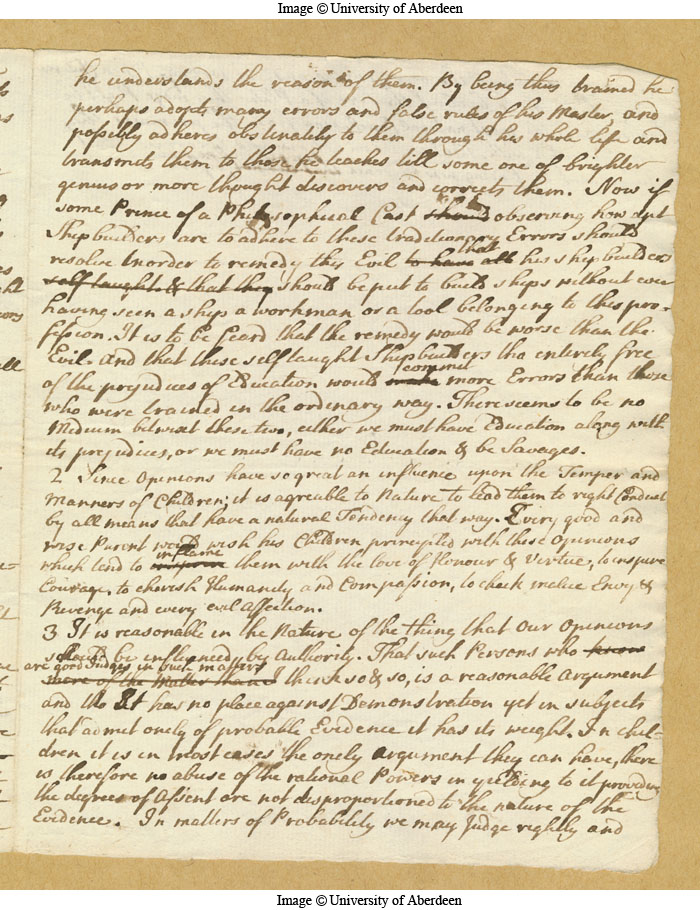 Image © University of Aberdeen
he understands the reason of them. By being thus trained he
perhaps adopts many errors and false rules of his Master, and
possibly adheres obstinately to them through his whole life and
transmits them to those he teaches till some one of brighter
genius or more thought discovers and corrects them. Now if
some Prince of a Philosophical Cast should observing how apt
Shipbuilders are to adhere to these traditionary Errors should
resolve in order to remedy this Evil to have all that his shipbuilders
self taught & that they should be put to build ships without ever
having seen a ship a workman or a tool belonging to this pro-
fession. It is to be feard that the remedy would be worse than the
Evil. and that these self taught Shipbuilders tho entirely free
of the prejudices of Education would make commit more Errors than those
who were trained in the ordinary way. There seems to be no
Medium betwixt these two, either we must have Education along with
its prejudices, or we must have no Education & be Savages.
2 Since Opinions have so great an influence upon the Temper and
Manners of Children; it is agreable to Nature to lead them to right Conduct
by all means that have a natural Tendency that way. Every good and
wise Parent would wish his Children principled with those Opinions
which tend to inflame them with the love of Honour & Virtue, to inspire
Courage, to cherish Humanity and Compassion, to check malice Envy &
Revenge and every evil Affection.
3 It is reasonable in the Nature of the thing that Our Opinions
should be influenced by Authority. That such Persons who know
are good Judges in such matters
more of the Matter than I think so & so, is a reasonable Argument
and tho It has no place against Demonstration yet in subjects
that admit onely of probable Evidence it has its weight. In chil-
dren it is in most cases the onely argument they can have, there
is therefore no abuse of the rational Powers in yielding to it providing
the degrees of Assent are not disproportioned to the nature of the
Evidence. In matters of Probability we may Judge rightly and
Image © University of Aberdeen